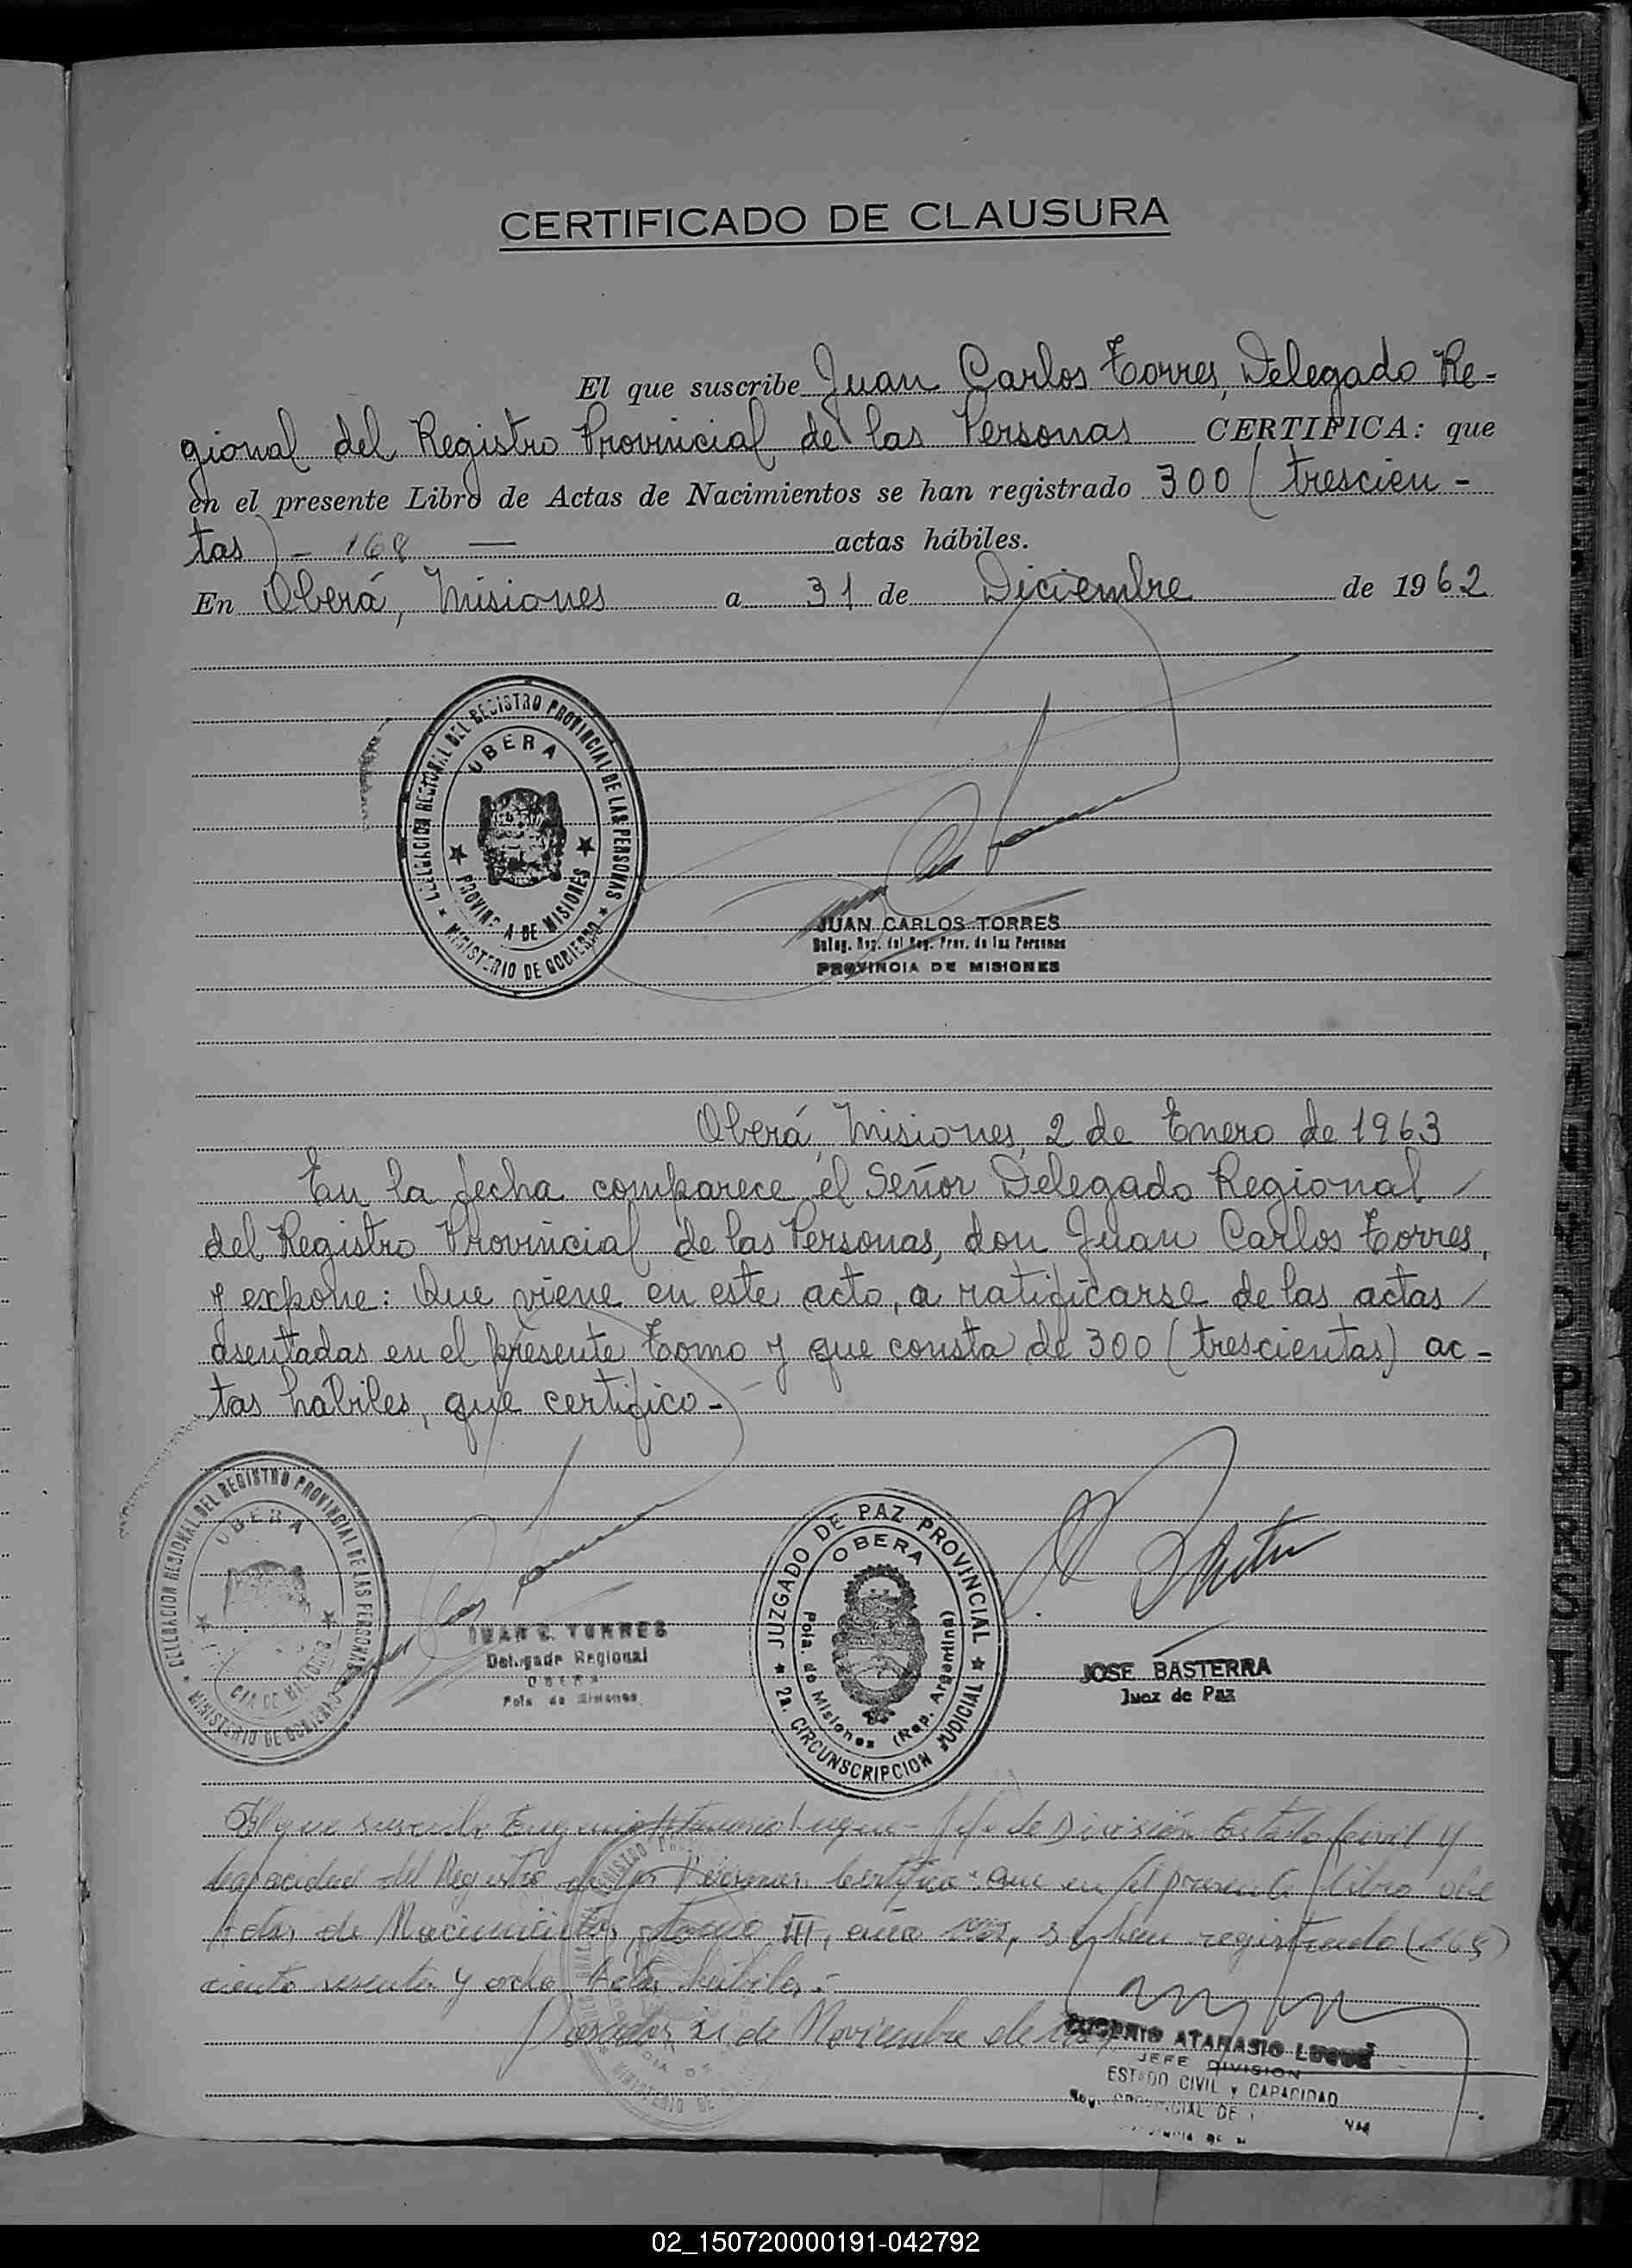 CERTIFICADO DE CLAUSURA
El que suscribe Juan Carlos Torres, Delegado Re-
gional del Registro Provincial de las Personas CERTIFICA: que
en el presente Libro de Actas de Nacimientos se han registrado 300 (trescien-
tas) - 168 — actas hábiles.
En Oberá, Misiones a 31 de Diciembre de 1962
DELEGACION REGIONAL DEL REGISTRO PROVINCIAL DE LAS PERSONAS
OBERA
PROVINCIA DE MISIONES
MINISTERIO DE GOBIERNO
JUAN CARLOS TORRES
Deleg. Reg. del Reg. Prov. de las Personas
PROVINCIA DE MISIONES
Oberá, Misiones, 2 de Enero de 1963
En la fecha comparece el Señor Delegado Regional /
del Registro Provincial de las Personas, don Juan Carlos Torres,
y expone: Que viene en este acto, a ratificarse de las actas /
asentadas en el presente Tomo y que consta de 300 (trescientas) ac-
tas hábiles, que certifico.-
DELEGACION REGIONAL DEL REGISTRO PROVINCIAL DE LAS PERSONAS
OBERA
MINISTERIO DE GOBIERNO
JUAN C. TORRES
Delegado Regional
OBERA
Pcia de Misiones
JUZGADO DE PAZ PROVINCIAL
OBERA
Pcia. de Misiones (Rep. Argentina)
2a. CIRCUNSCRIPCION JUDICIAL
JOSE BASTERRA
Juez de Paz
El que suscribe Eugenio Atanasio Luque - Jefe de División Estado Civil y
Capacidad del Registro de las Personas, Certifica: Que en el presente libro de
Actas de Nacimientos, tomo III, año 1962, se han registrado (168)
ciento sesenta y ocho Actas hábiles.-
Posadas 21 de Noviembre de
EUGENIO ATANASIO LUQUE
JEFE DIVISION
ESTADO CIVIL y CAPACIDAD
PROVINCIAL DE
02_150720000191-042792